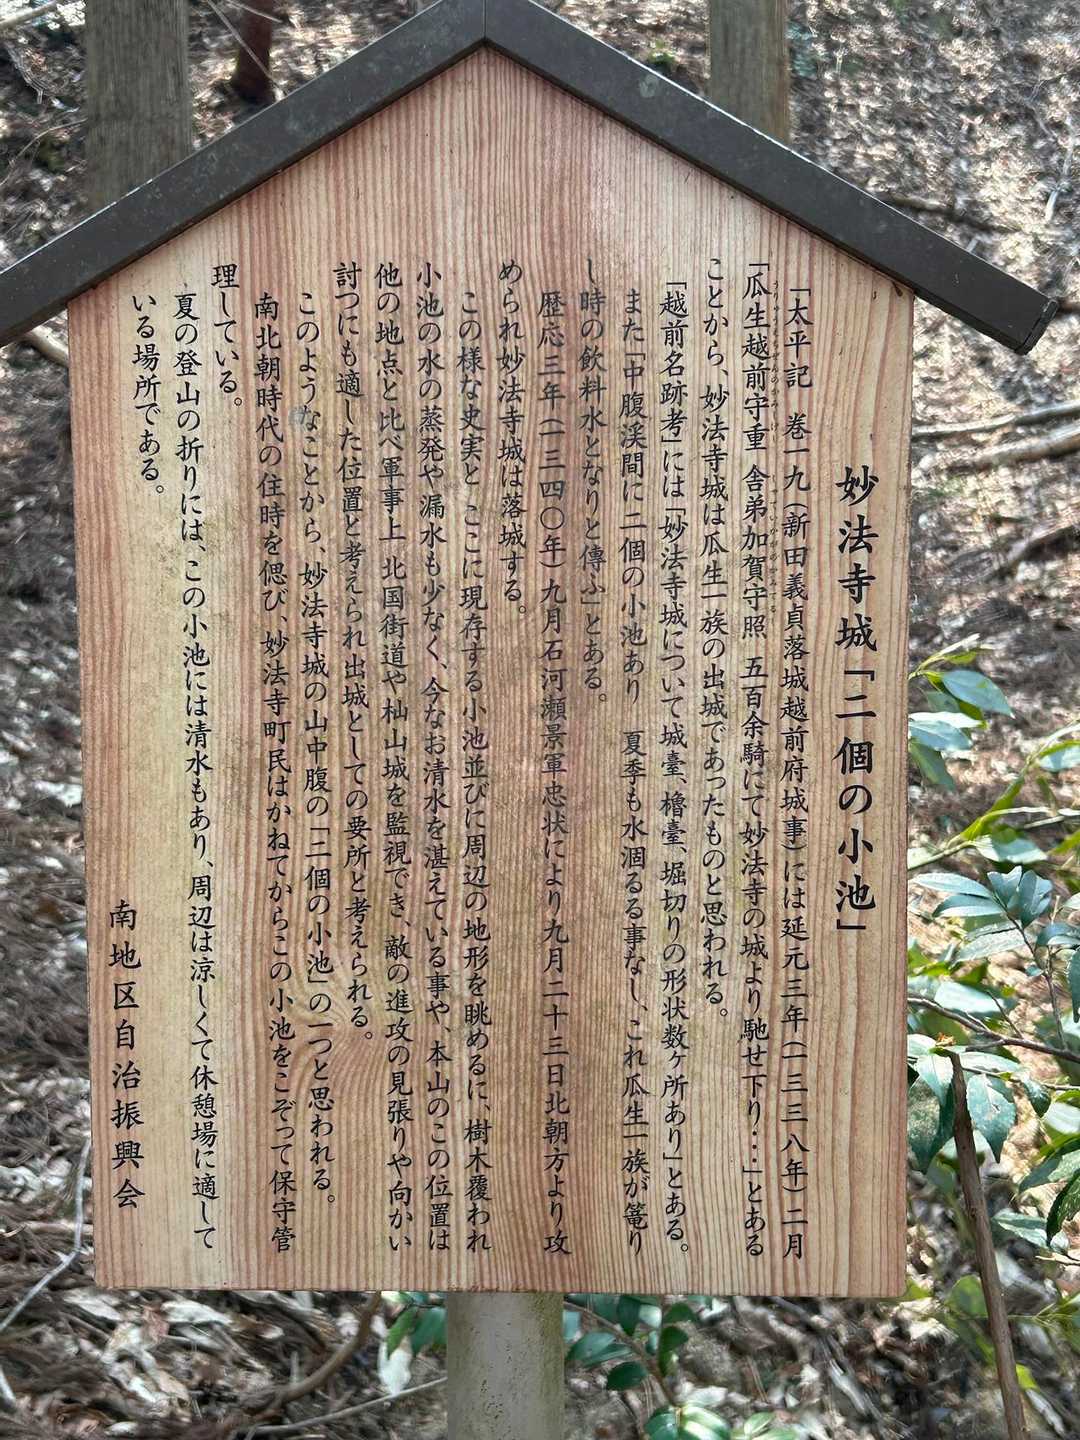 妙法寺城「二個の小池」
「太平記 巻一九(新田義貞落城越前府城事)には延元三年(一三三八年)二月
「瓜生越前守重 舎弟加賀守照 五百余騎にて妙法寺の城より馳せ下り・・・」とある
ことから、妙法寺城は瓜生一族の出城であったものと思われる。
「越前名跡考」には「妙法寺城について城臺、櫓臺、堀切りの形状数ヶ所あり」とある。
また「中腹渓間に二個の小池あり 夏季も水涸るる事なし、これ瓜生一族が篭り
し時の飲料水となりと傳ふ」とある。
歴応三年(一三四〇年)九月石河瀬景軍忠状により九月二十三日北朝方より攻
められ妙法寺城は落城する。
この様な史実と ここに現存する小池並びに周辺の地形を眺めるに、樹木覆われ
小池の水の蒸発や漏水も少なく、今なお清水を湛えている事や、本山のこの位置は
他の地点と比べ軍事上 北国街道や杣山城を監視でき、敵の進攻の見張りや向かい
討つにも適した位置と考えられ出城としての要所と考えられる。
このようなことから、妙法寺城の山中腹の「二個の小池」の一つと思われる。
南北朝時代の住時を偲び、妙法寺町民はかねてからこの小池をこぞって保守管
理している。
夏の登山の折りには、この小池には清水もあり、周辺は涼しくて休憩場に適して
いる場所である。
南地区自治振興会